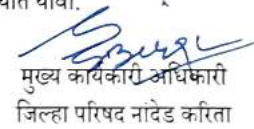 यावी.
मुख्य कार्यकारी अधिकारी
जिल्हा परिषद नांदेड करिता